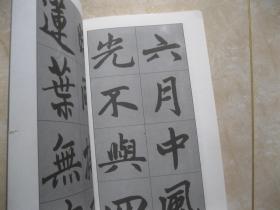 六月中風
光不與四
蓮葉無